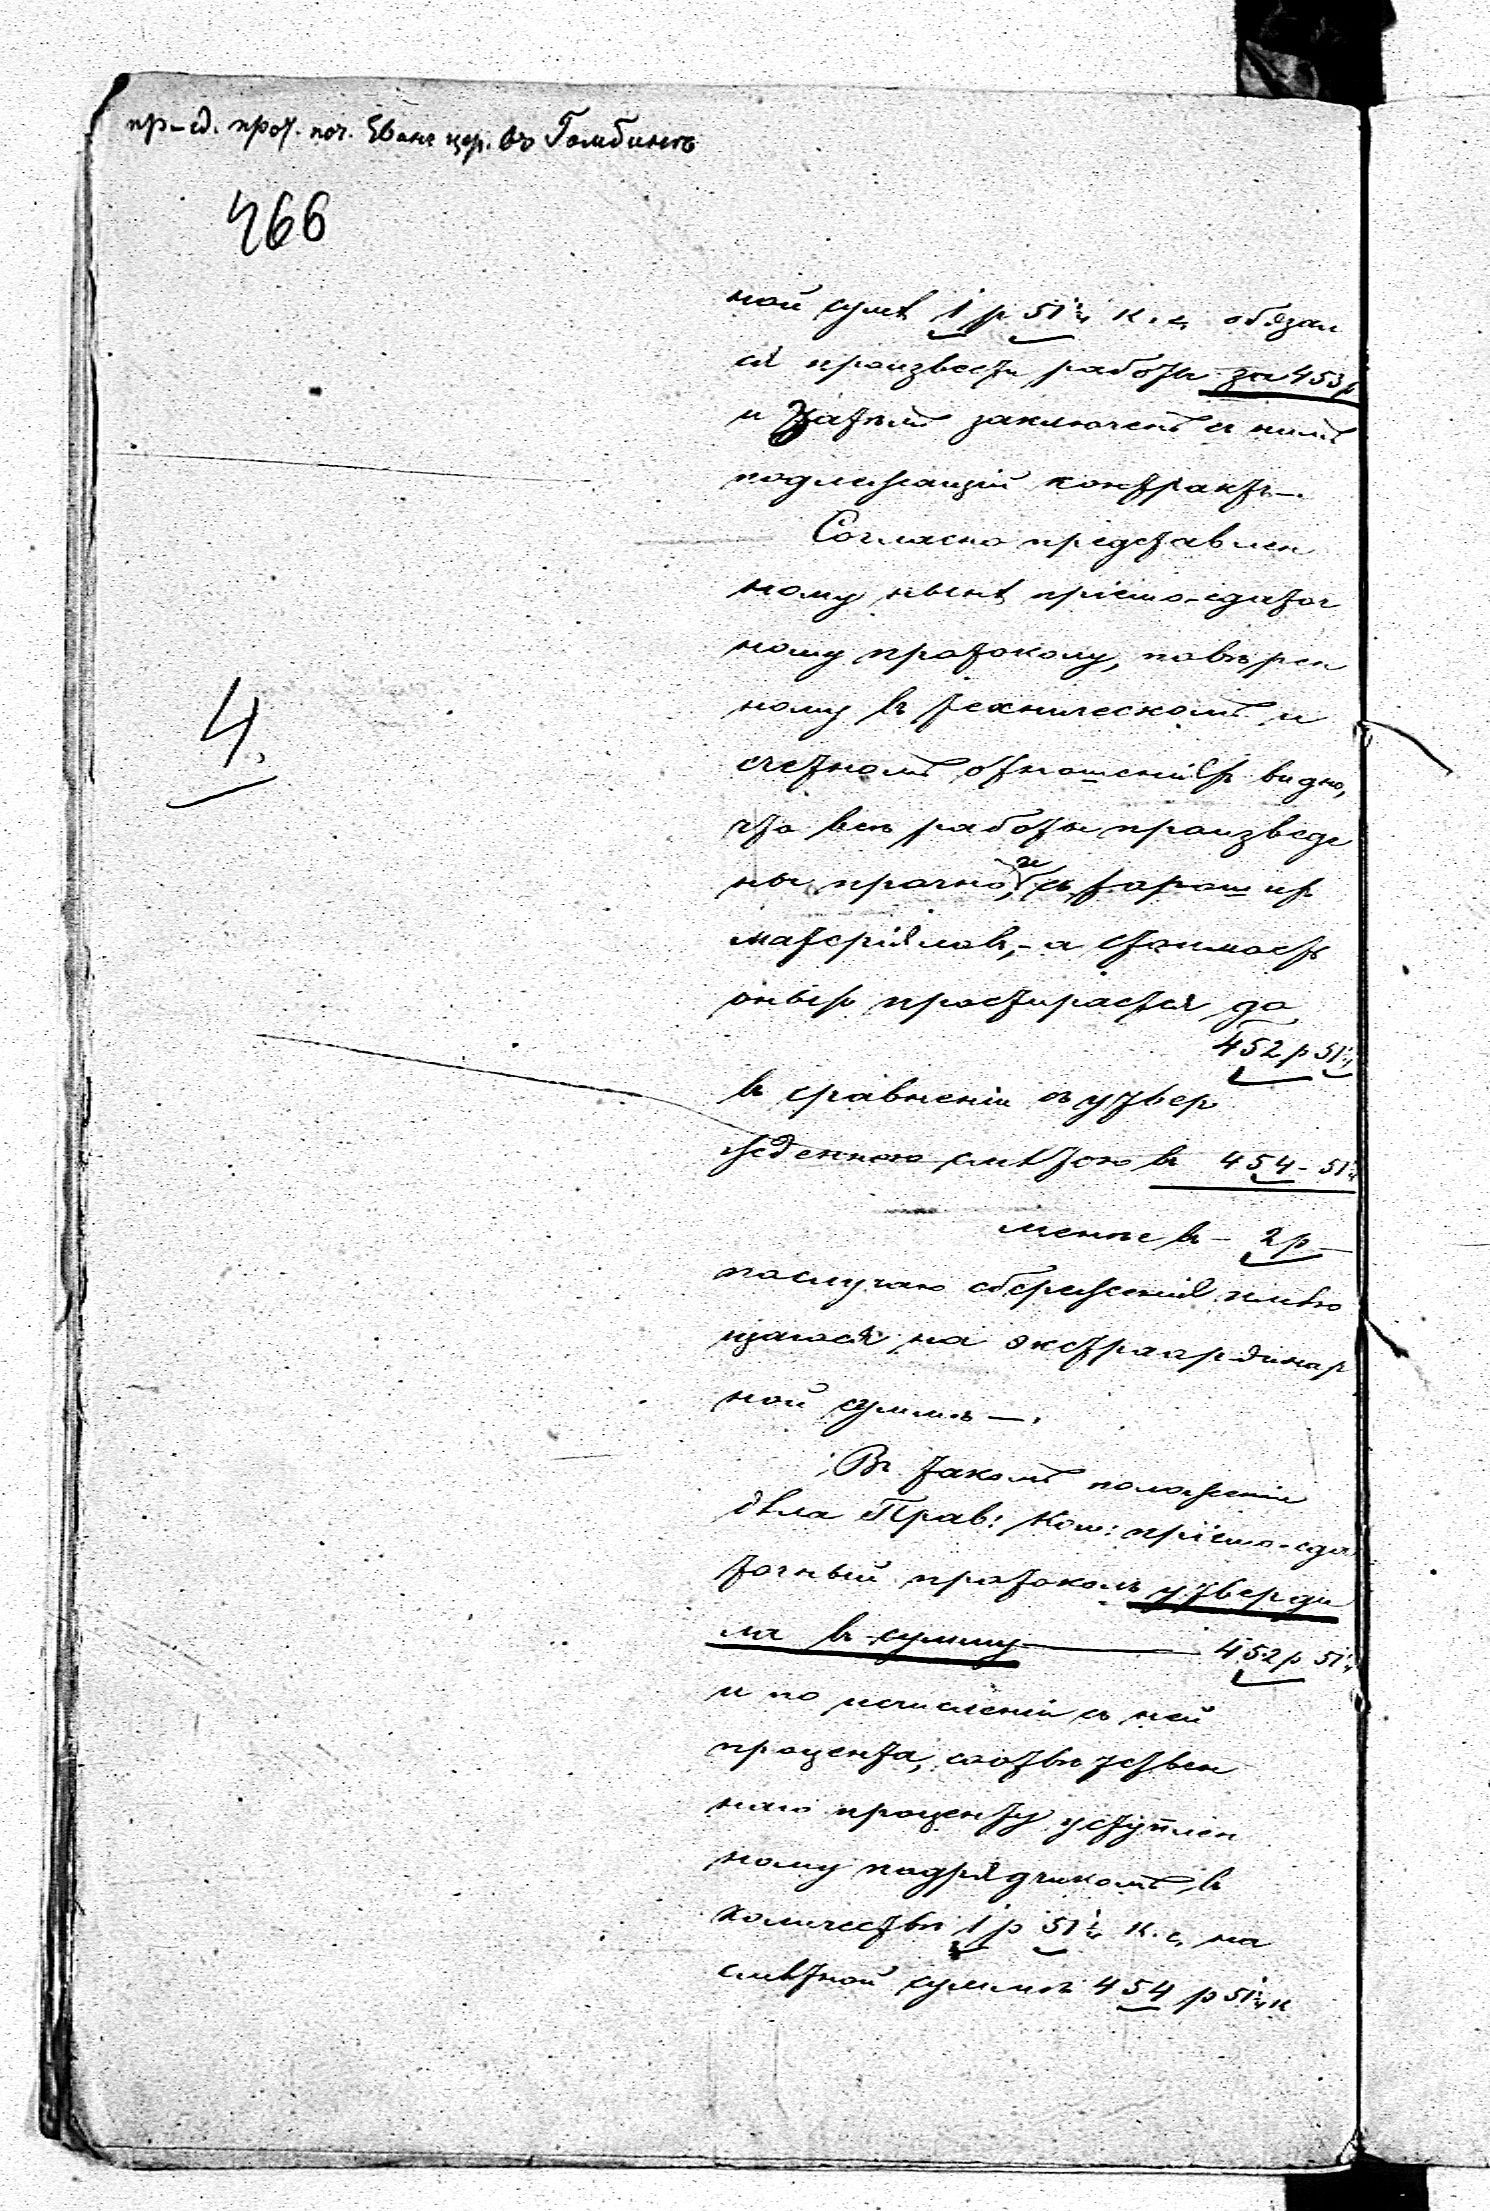 пр-сд. прот. поч. Еванг цер. въ Гомбинѣ
466
ной сумѣ 1 р 51¼ к. с, обязал
ся произвести работы за 453 р
и затѣмъ заключенъ съ нимъ
подлежащій контрактъ —.
Согласно представлен
ному нынѣ пріемо-сдаточ
ному протоколу, повѣрен
4.
ному въ техническомъ и
счетномъ отношеніях видно,
что всѣ работы произведе
ны прочно, и съ хороших
матеріялов, - а стоимость
оных простирается до
452 р 51¼
въ сравненіи съ утвер
жденною смѣтою въ 454 - 51¼
менѣе в - 2 р -
по случаю сбереженія имѣю
щагося на экстраординар
ной суммѣ —.
Въ такомъ положеніи
дѣла Прав: Ком: пріемо-сда
точный протоколъ утверди
ла въ сумму — 452 р 51¼
и по исчисленіи съ ней
процента, соотвѣтствен
наго проценту уступлен
ному подрядчикомъ въ
количествѣ 1 р 51¼ к. с, на
смѣтной суммѣ 454 р 51¼ к